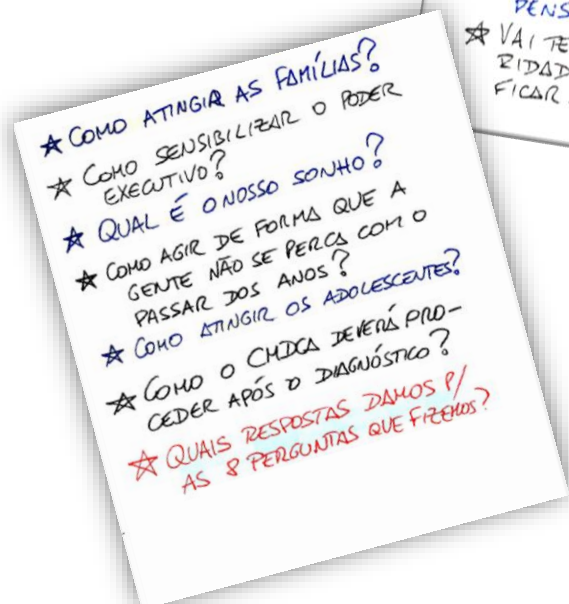 PENS
☆ VAI TE
RIDAD
FICAR
☆ COMO ATINGIR AS FAMÍLIAS?
☆ COMO SENSIBILIZAR O PODER
EXECUTIVO?
☆ QUAL É O NOSSO SONHO?
☆ COMO AGIR DE FORMA QUE A
GENTE NÃO SE PERCA COM O
PASSAR DOS ANOS?
☆ COMO ATINGIR OS ADOLESCENTES?
☆ COMO O CMDCA DEVERÁ PRO-
CEDER APÓS O DIAGNÓSTICO?
☆ QUAIS RESPOSTAS DAMOS P/
AS 8 PERGUNTAS QUE FIZEMOS?